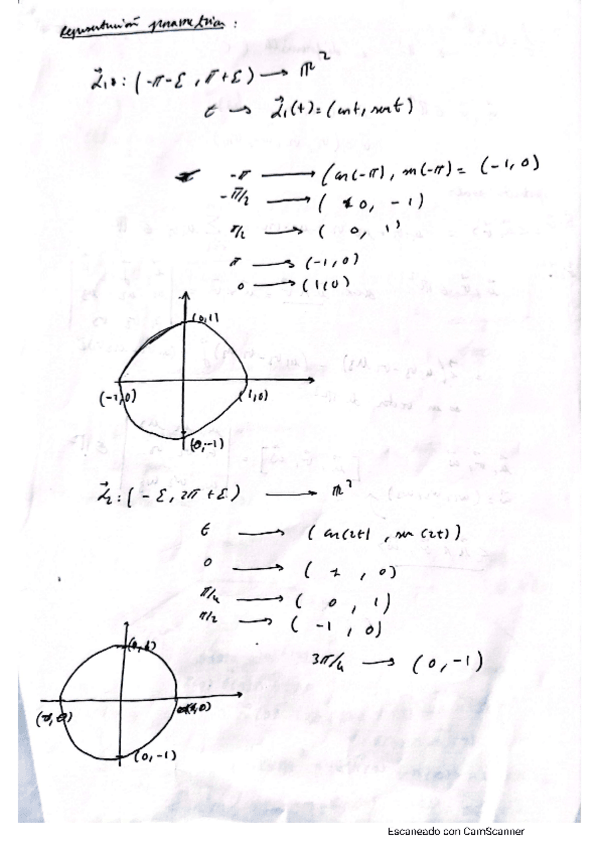 Representación parametrica :
α⃗₁: (-π-ε, π+ε) → ℝ²
t → α⃗₁(t) = (cos t, sen t)
-π → (cos(-π), sen(-π) = (-1,0)
-π/2 → ( 0, -1)
π/2 → ( 0, 1)
π → (-1,0)
0 → (1,0)
(0,1)
(-1,0) (1,0)
(0,-1)
α⃗₂: (-ε, 2π+ε) → ℝ²
t → (cos(2t), sen(2t))
0 → ( 1 , 0)
π/4 → ( 0 , 1)
π/2 → ( -1 , 0)
3π/4 → (0,-1)
(0,-1)
Escaneado con CamScanner